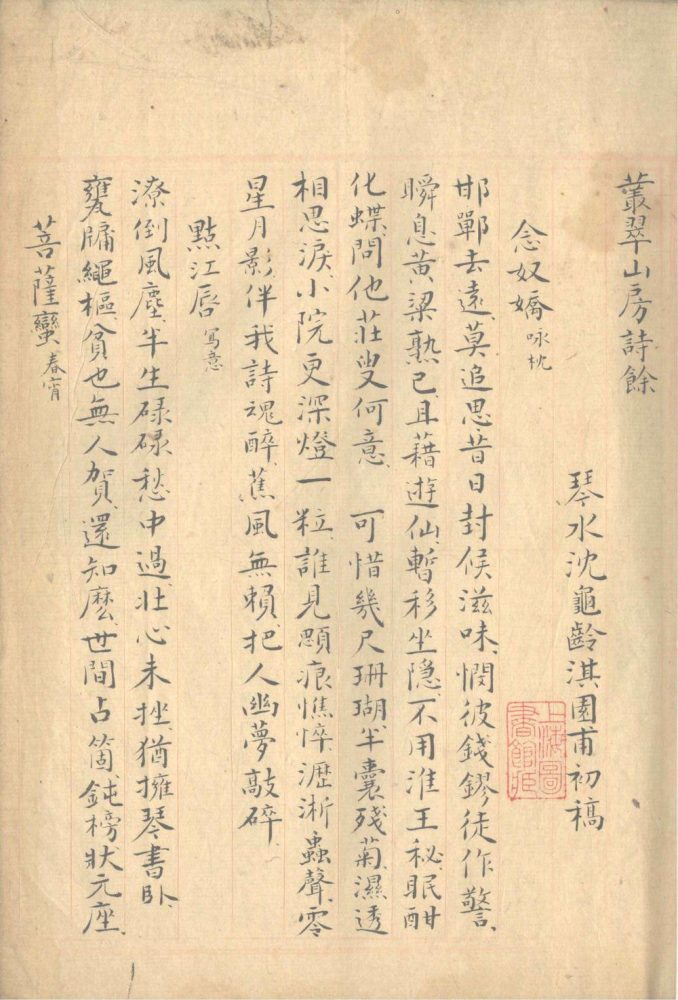 叢翠山房詩餘
琴水沈龜齡淇園甫初稿
念奴嬌 咏枕
邯鄲去遠、莫追思昔日封侯滋味、憫彼錢鏐徒作警、
瞬息黃粱熟已、且藉遊仙、暫移坐隱、不用淮王秘、眠酣
化蝶、問他莊叟何意 可惜幾尺珊瑚、半囊殘菊、濕透
相思淚、小院更深燈一粒、誰見顋痕憔悴、瀝淅蟲聲、零
星月影、伴我詩魂醉、蕉風無賴、把人幽夢敲碎、
點江唇 写意
潦倒風塵、半生碌碌愁中過、壯心未挫、猶擁琴書卧、
甕牖繩樞、貧也無人賀、還知麼、世間占箇、鈍榜狀元座、
菩薩蠻 春宵
上海圖
書館藏